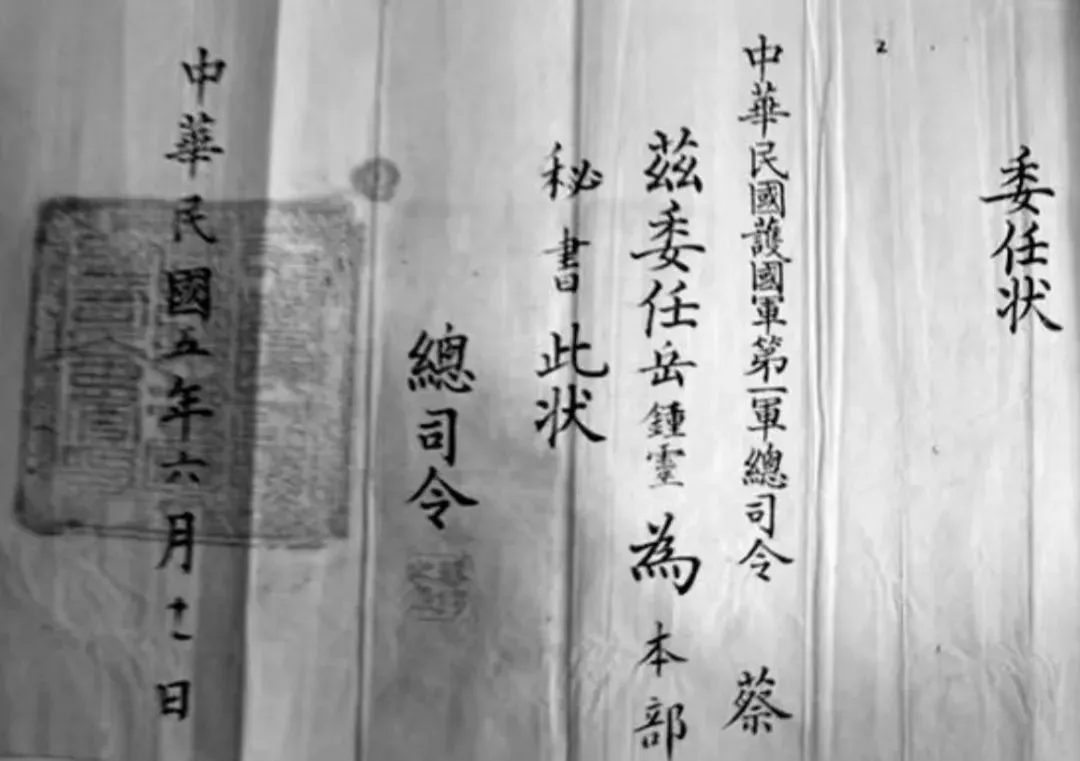 委任状
中華民國護國軍第一軍總司令 蔡
茲委任岳鍾靈為本部
秘書此状
總司令
中華民國五年六月十一日